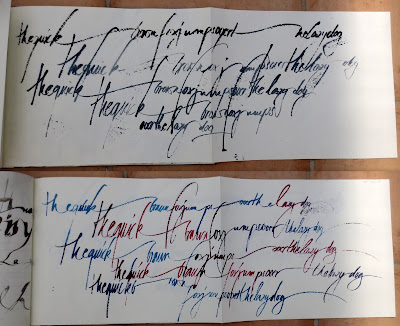 the quick brown fox jumps over the lazy dog
the quick brown fox jumps over the lazy dog
the quick brown fox jumps over the lazy dog
the quick brown fox jumps
over the lazy dog
the quick brown fox jumps over the lazy dog
the quick brown fox jumps over the lazy dog
the quick brown fox jumps over the lazy dog
the quick brown fox jumps over the lazy dog
the quick brown
fox jumps over the lazy dog